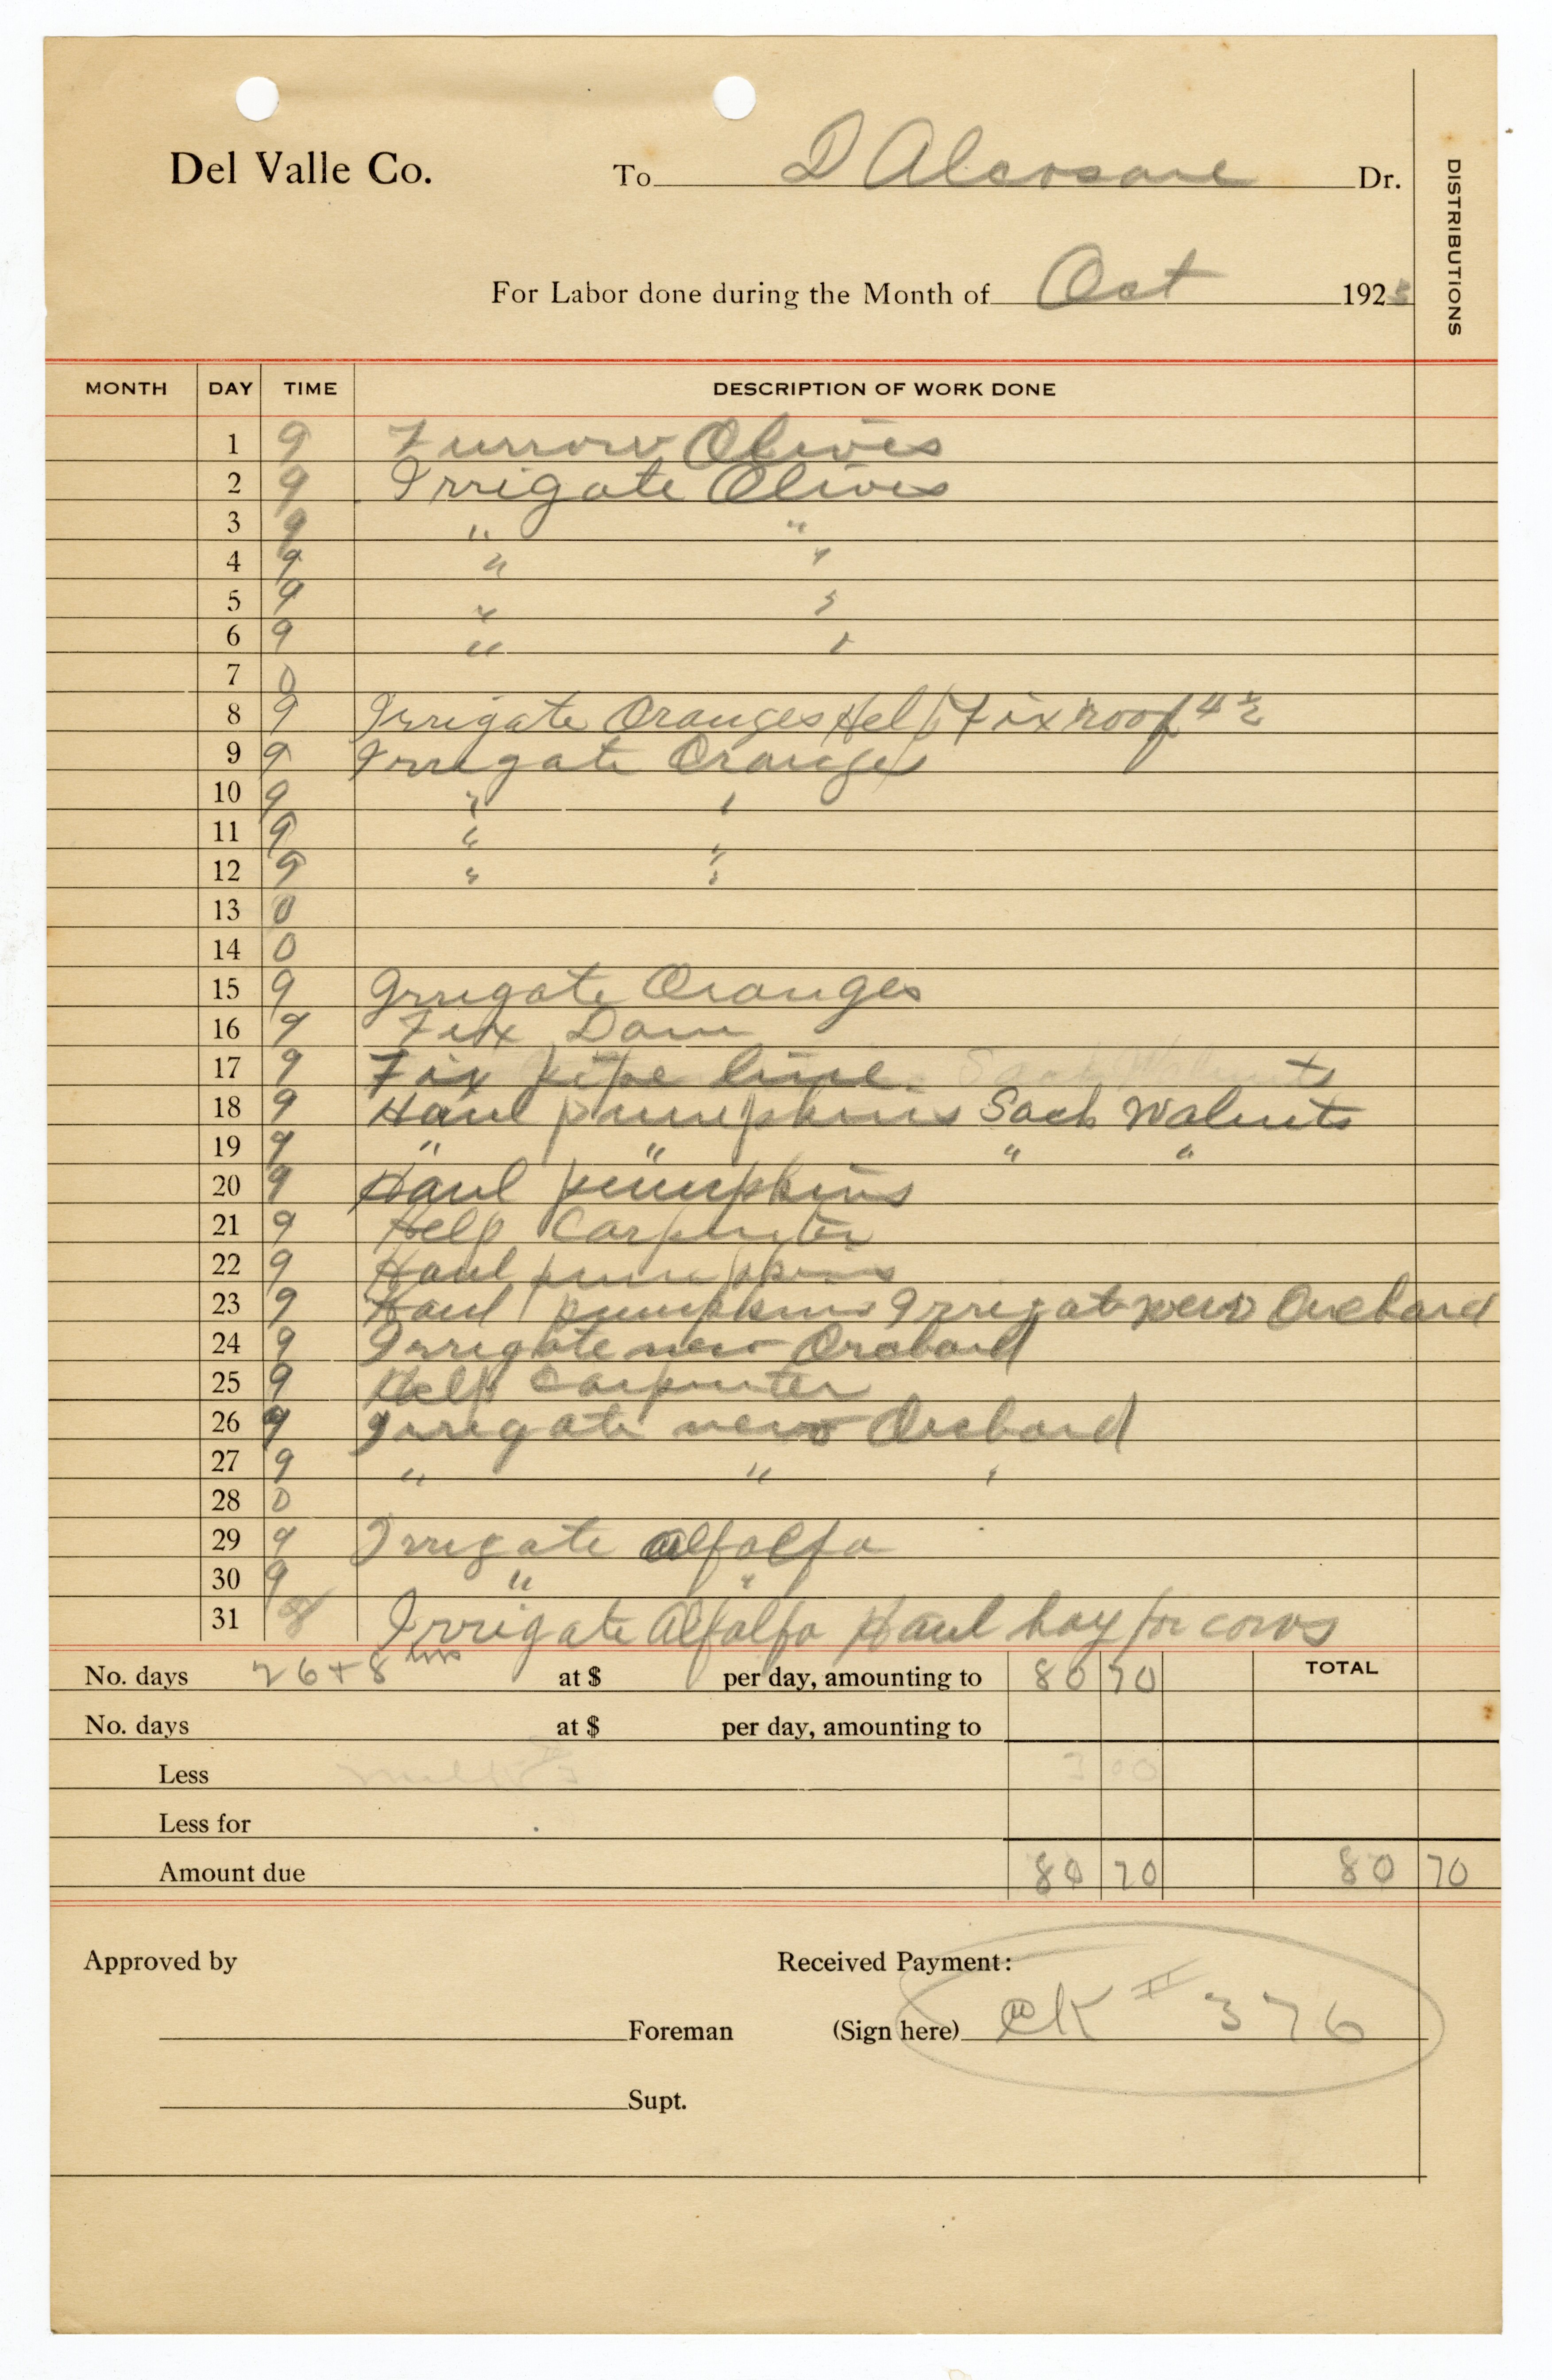 Del Valle Co. To D Dr.
DISTRIBUTIONS
For Labor done during the Month of Oct 192
MONTH DAY TIME DESCRIPTION OF WORK DONE
1 9 Furrow Olives
2 9 Irrigate Olives
3 9 " "
4 9 " "
5 9 " "
6 9 " "
7 0
8 9 Irrigate Oranges Help Fix roof 4 1/2
9 9 Irrigate Oranges
10 9 " "
11 9 " "
12 9 " "
13 0
14 0
15 9 Irrigate Oranges
16 9 Fix Dam
17 9 Fix pipe line
18 9 Haul pumpkins Sack Walnuts
19 9 " " " "
20 9 Haul pumpkins
21 9 Help Carpenter
22 9 Haul pumpkins
23 9 Haul pumpkins Irrigate new Orchard
24 9 Irrigate new Orchard
25 9 Help Carpenter
26 9 Irrigate new Orchard
27 9 " " "
28 0
29 9 Irrigate alfalfa
30 9 " "
31 8 Irrigate Alfalfa Haul hay for cows
No. days 26 + 8 hrs at $ per day, amounting to 80 70 TOTAL
No. days at $ per day, amounting to
Less 3 00
Less for
Amount due 80 70 80 70
Approved by Received Payment:
Foreman (Sign here) CK # 376
Supt.